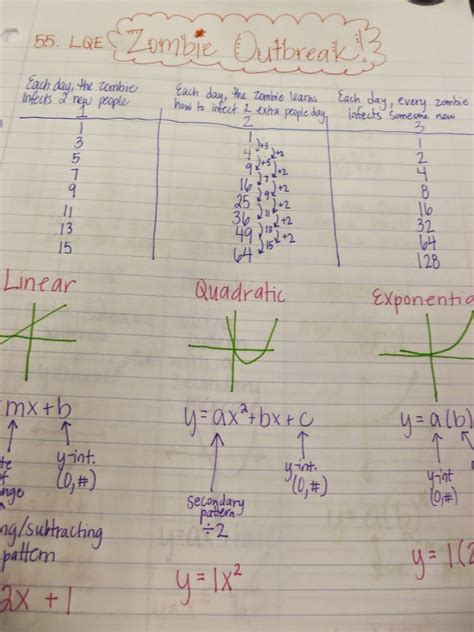 55. LQE Zombie Outbreak!
Each day, the zombie
infects 2 new people
1
1
3
5
7
9
11
13
15
Each day, the zombie learns
how to infect 2 extra people/day
2
1
4
9
16
25
36
49
64
+3
+5
7
9
11
13
15
+2
+2
+2
+2
+2
+2
Each day, every zombie
infects someone new
3
1
2
4
8
16
32
64
128
Linear
Quadratic
Exponentia
mx+b
y=ax²+bx+c
y=a(b)
y-int.
(0,#)
secondary
pattern
÷2
y-int.
(0,#)
y-int
(0,#)
ng/subtracting
pattern
2x + 1
y = 1x²
y = 1(2